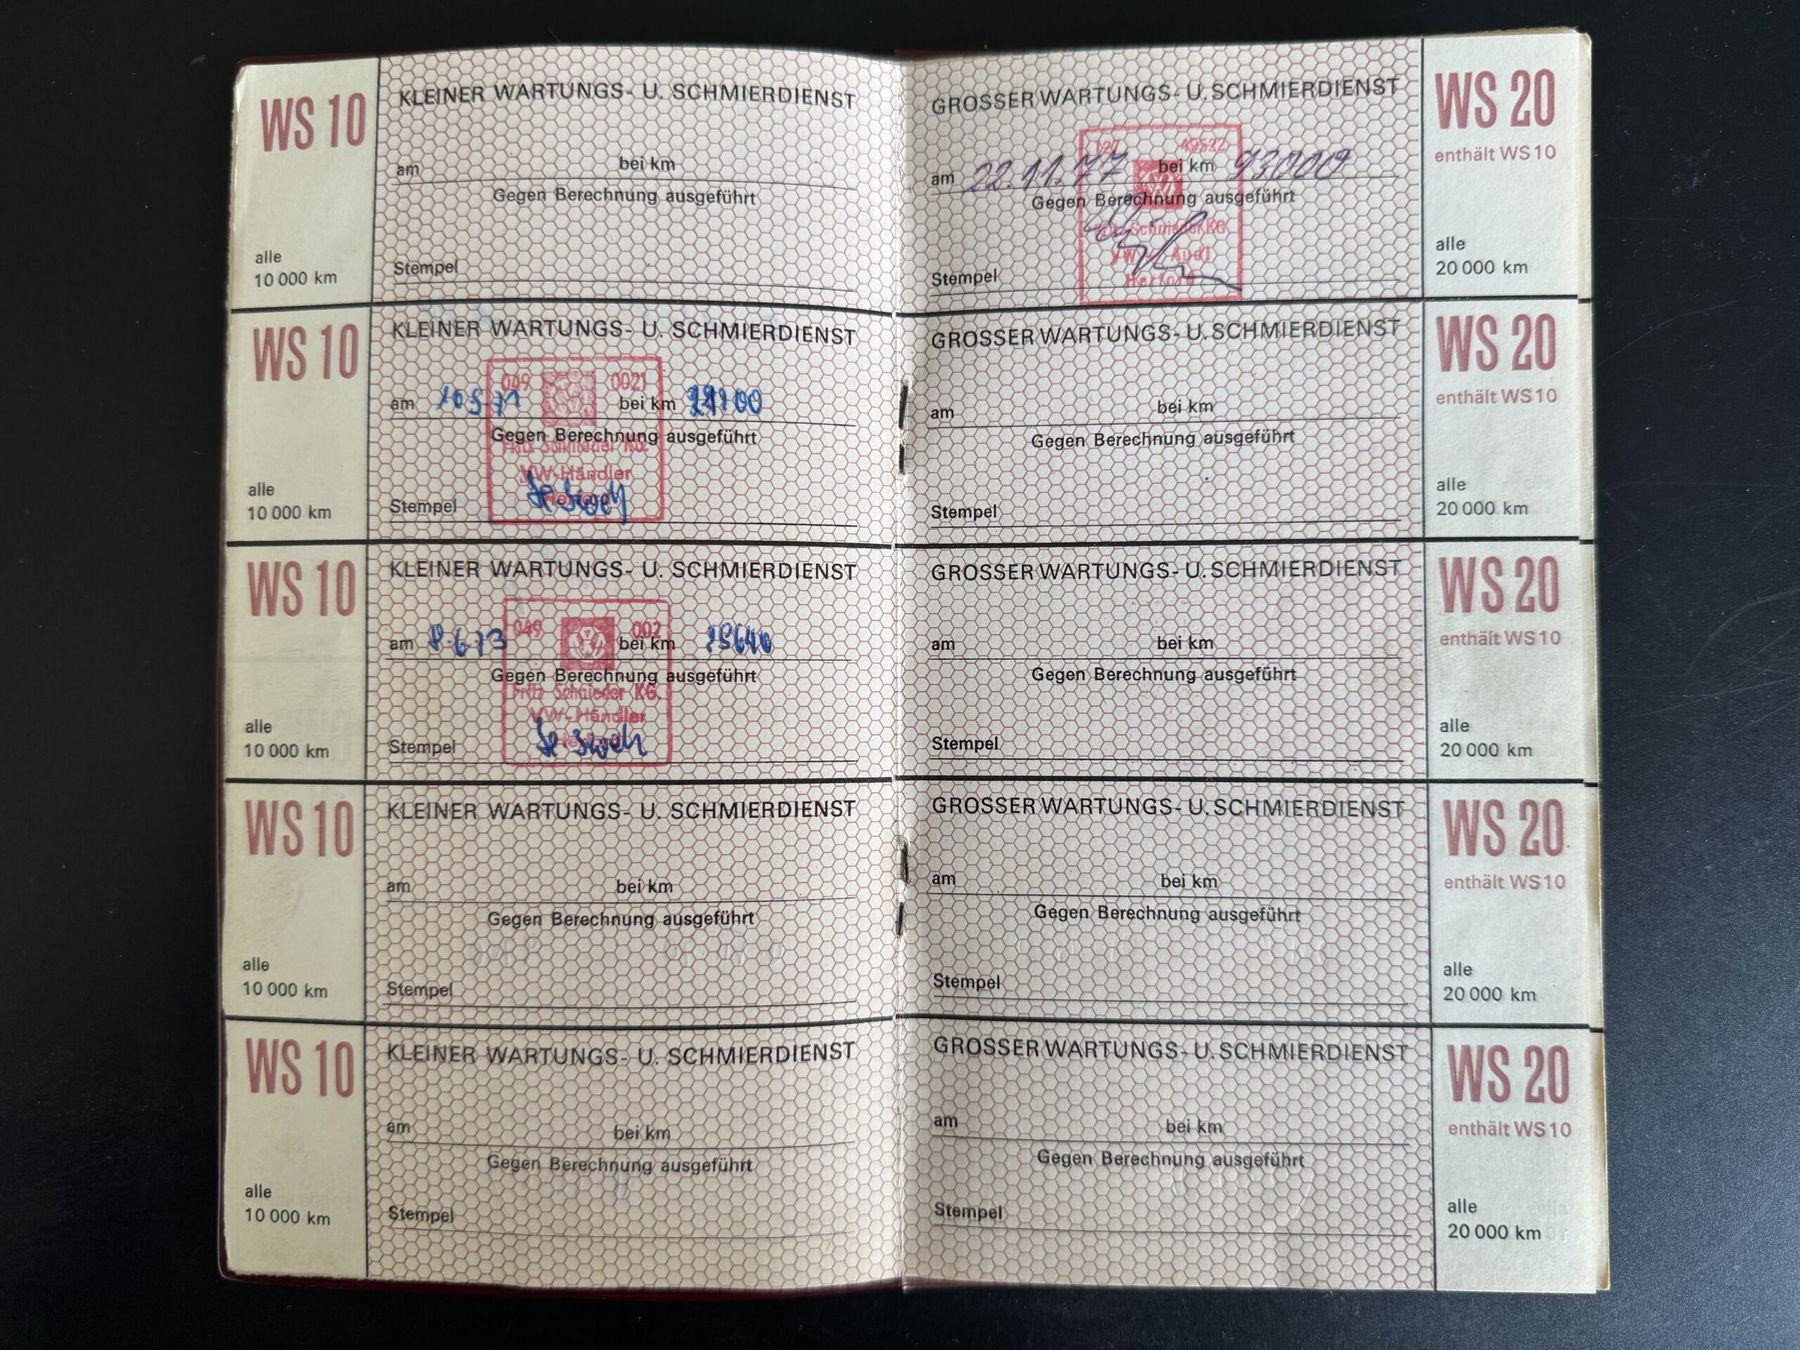 WS 10
KLEINER WARTUNGS- U. SCHMIERDIENST
am bei km
Gegen Berechnung ausgeführt
alle
10 000 km
Stempel
WS 10
KLEINER WARTUNGS- U. SCHMIERDIENST
049 0021
am bei km
Gegen Berechnung ausgeführt
Fritz Schnieder KG.
VW-Händler
Herford
alle
10 000 km
Stempel
WS 10
KLEINER WARTUNGS- U. SCHMIERDIENST
049 002
am 8.6.73 bei km
Gegen Berechnung ausgeführt
Fritz Schnieder KG.
VW-Händler
Herford
alle
10 000 km
Stempel
WS 10
KLEINER WARTUNGS- U. SCHMIERDIENST
am bei km
Gegen Berechnung ausgeführt
alle
10 000 km
Stempel
WS 10
KLEINER WARTUNGS- U. SCHMIERDIENST
am bei km
Gegen Berechnung ausgeführt
alle
10 000 km
Stempel
GROSSER WARTUNGS- U. SCHMIERDIENST
WS 20
enthält WS 10
am 22.11.77 bei km 93000
Gegen Berechnung ausgeführt
Schnieder KG
VW - Audi
Herford
alle
20 000 km
Stempel
GROSSER WARTUNGS- U. SCHMIERDIENST
WS 20
enthält WS 10
am bei km
Gegen Berechnung ausgeführt
alle
20 000 km
Stempel
GROSSER WARTUNGS- U. SCHMIERDIENST
WS 20
enthält WS 10
am bei km
Gegen Berechnung ausgeführt
alle
20 000 km
Stempel
GROSSER WARTUNGS- U. SCHMIERDIENST
WS 20
enthält WS 10
am bei km
Gegen Berechnung ausgeführt
alle
20 000 km
Stempel
GROSSER WARTUNGS- U. SCHMIERDIENST
WS 20
enthält WS 10
am bei km
Gegen Berechnung ausgeführt
alle
20 000 km
Stempel